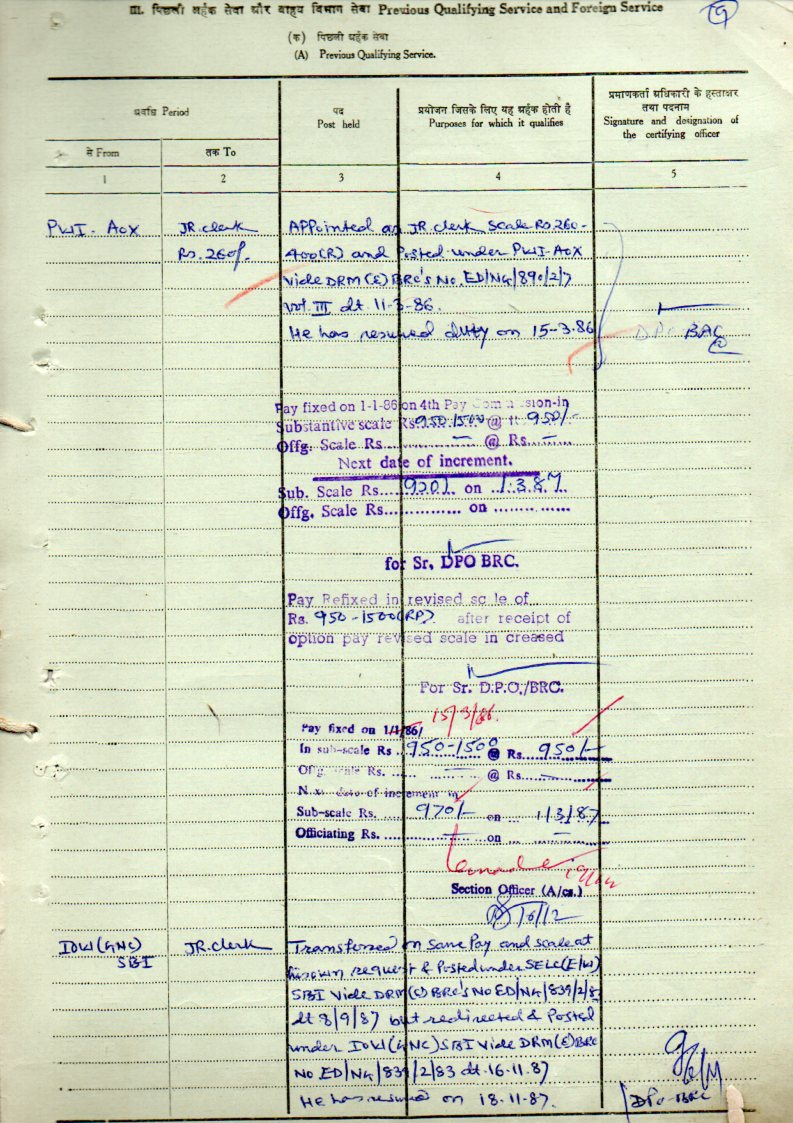 III. पिछली अर्हक सेवा और बाह्य विभाग सेवा Previous Qualifying Service and Foreign Service
9
(क) पिछली अर्हक सेवा
(A) Previous Qualifying Service.
अवधि Period
पद
Post held
प्रयोजन जिसके लिए यह अर्हक होती है
Purposes for which it qualifies
प्रमाणकर्ता अधिकारी के हस्ताक्षर
तथा पदनाम
Signature and designation of
the certifying officer
से From
तक To
1 2 3 4 5
PWI. AOX JR. clerk APPointed as JR. clerk Scale Rs. 260-
Rs. 260/. 400(R) and Posted under PWI-AOX
Vide DRM(E) BRC's No. ED/NG/890/2/7
vol. III dt 11-3-86.
He has resumed duty on 15-3-86
DPO BRC
Pay fixed on 1-1-86 on 4th Pay Commission-in
Substantive scale Rs 950.1500 @ 950/-
Offg. Scale Rs. — @ Rs. —
Next date of increment.
Sub. Scale Rs. on 1.3.87
Offg. Scale Rs. on
for Sr. DPO BRC.
Pay Refixed in revised sc le of
Rs. 950-1500(RP) after receipt of
option pay revised scale in creased
For Sr. D.P.O./BRC.
15/3/86.
Pay fixed on 1/1/86/
In sub-scale Rs. 950-1500 @ Rs. 950/-
Offg. scale Rs. — @ Rs. —
Nx date of increment in
Sub-scale Rs. 970/- on 1/3/87
Officiating Rs. — on —
Section Officer (A/cs.)
10/12
IOW(GNC) JR. clerk Transferred on same Pay and scale at
SBI his own request & Posted under SELC(E/W)
SBI Vide DRM(E) BRC's No ED/NG/839/2/8
dt 8/9/87 but redirected & Posted
under IOW(GNC) SBI Vide DRM(E) BRC
No ED/NG/839/2/83 dt. 16.11.87
He has resumed on 18.11.87.
DPO-BRC